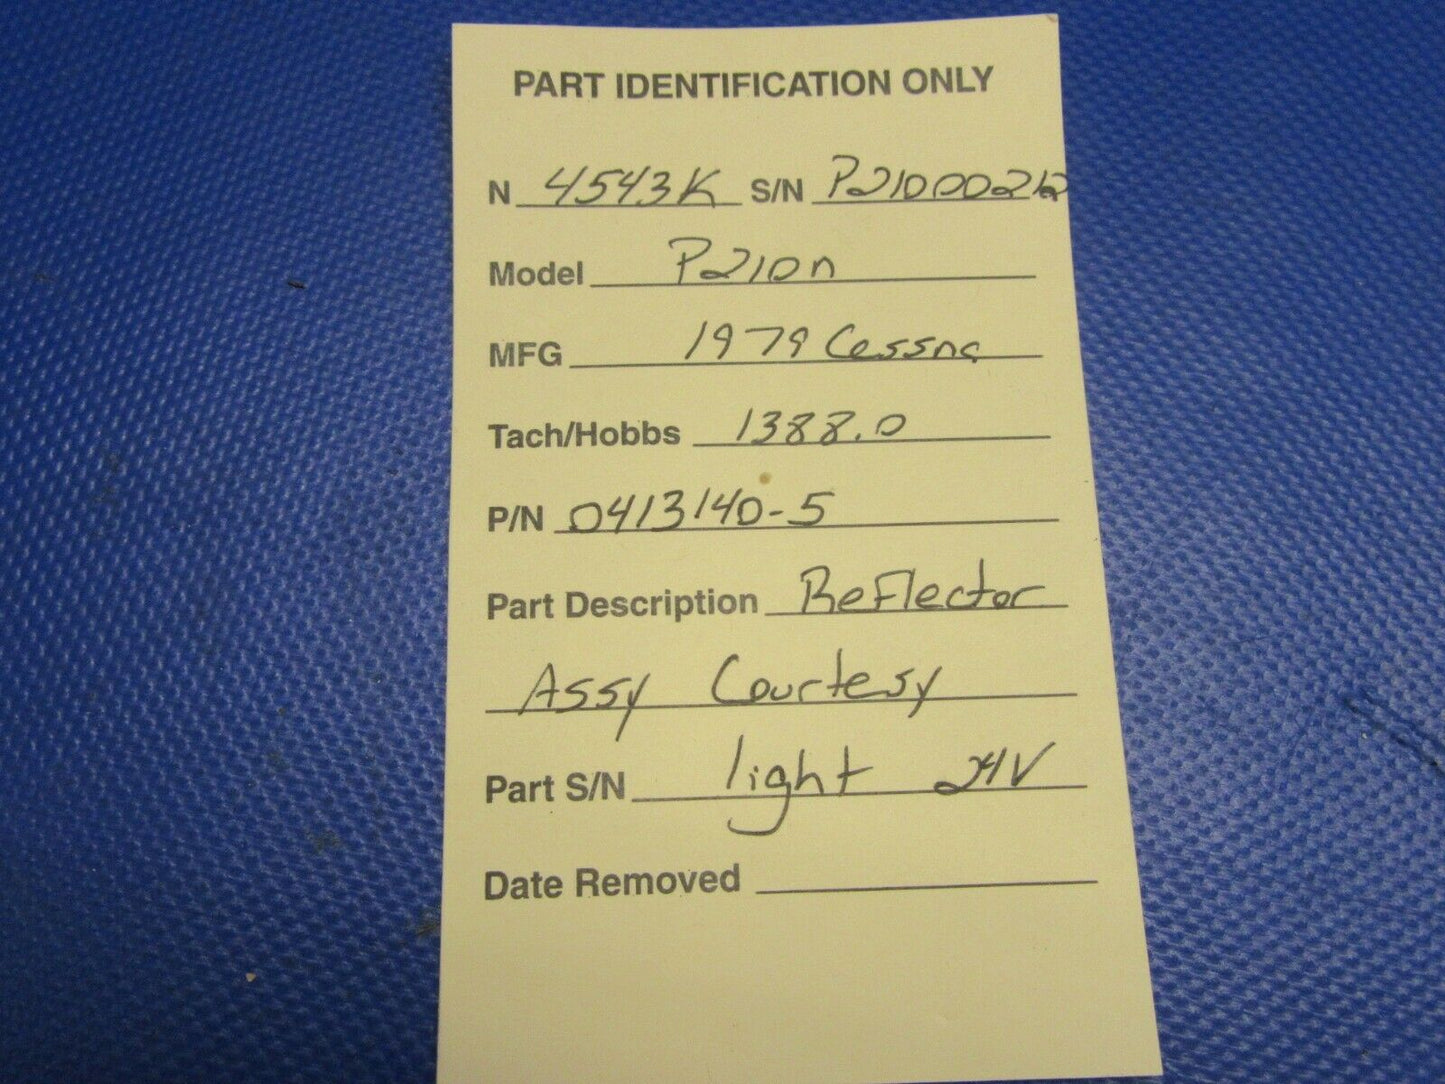 PART IDENTIFICATION ONLY
N 4543K S/N P21000212
Model P210n
MFG 1979 Cessna
Tach/Hobbs 1388.0
P/N 0413140-5
Part Description Reflector
Assy Courtesy
Part S/N light 24V
Date Removed